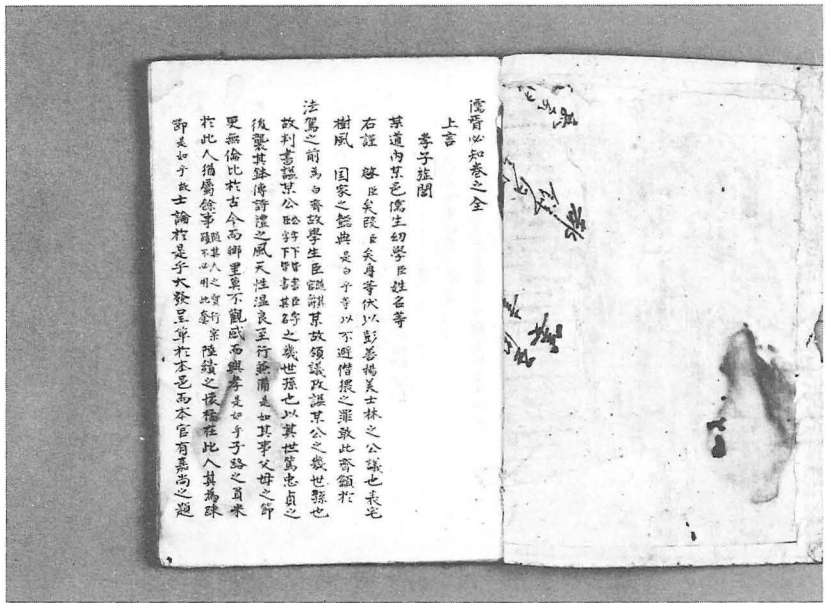 儒胥必知卷之全
上言
孝子㫌閭
某道內某邑儒生幼學臣姓名等
右謹 啓臣矣段臣矣身等伏以彰善揚美士林之公議也表宅
樹風 国家之懿典是白乎等以不避僣猥之罪敢此齊籲於
法駕之前爲白齊故學生臣某故領議政諡某公之幾世孫也
故判書諡某公之幾世孫也以其世篤忠貞之
後襲其鉢傳詩禮之風天性温良至行兼備是如其事父母之節
更無倫比於古今而鄉里莫不觀感而興孝是如乎子路之負米
於此人猶屬餘事隨其人之實行蹟不必用此套陸績之懷橘在此人其爲疎
節是如乎故士論於是乎大發呈單於本邑而本官有嘉尚之題